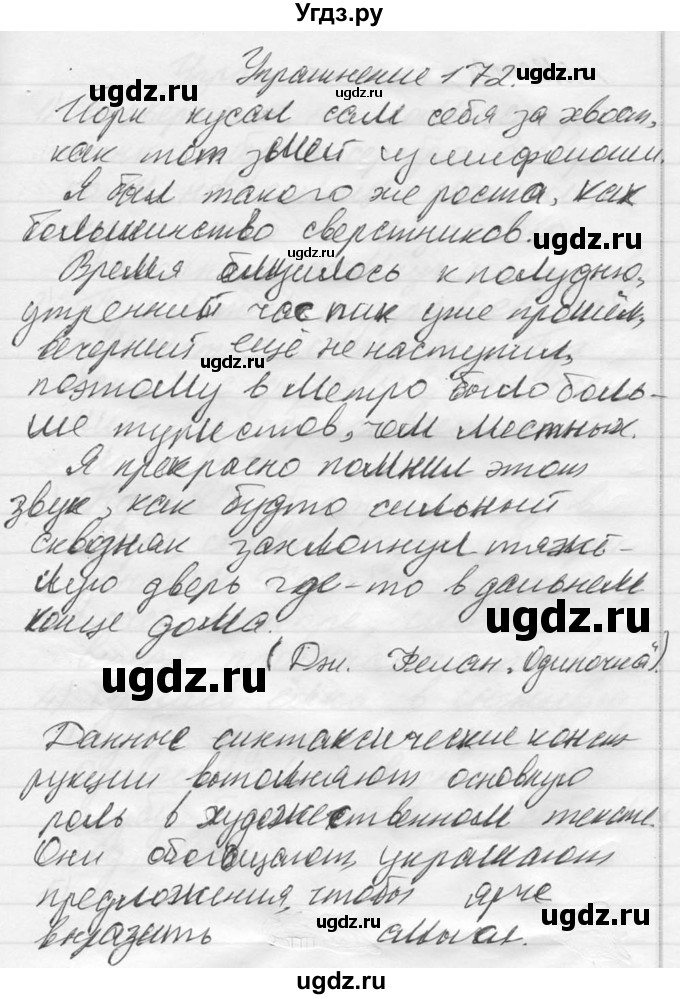 Угдз.ру
Упражнение 172.
Йорк кусал сам себя за хвост,
как тот змей из мифологии.
Я был такого же роста, как
большинство сверстников.
Время близилось к полудню,
утренний час пик уже прошёл,
вечерний ещё не наступил,
поэтому в метро было боль-
ше туристов, чем местных.
Я прекрасно помнил этот
звук, как будто сильный
сквозняк захлопнул тяжё-
лую дверь где-то в дальнем
конце дома.
(Дж. Фелан „Одиночка").
Данные синтаксические конст
рукции выполняют основную
роль в художественном тексте.
Они обогащают, украшают
предложения, чтобы ярче
выразить смысл.
ugdz.ru